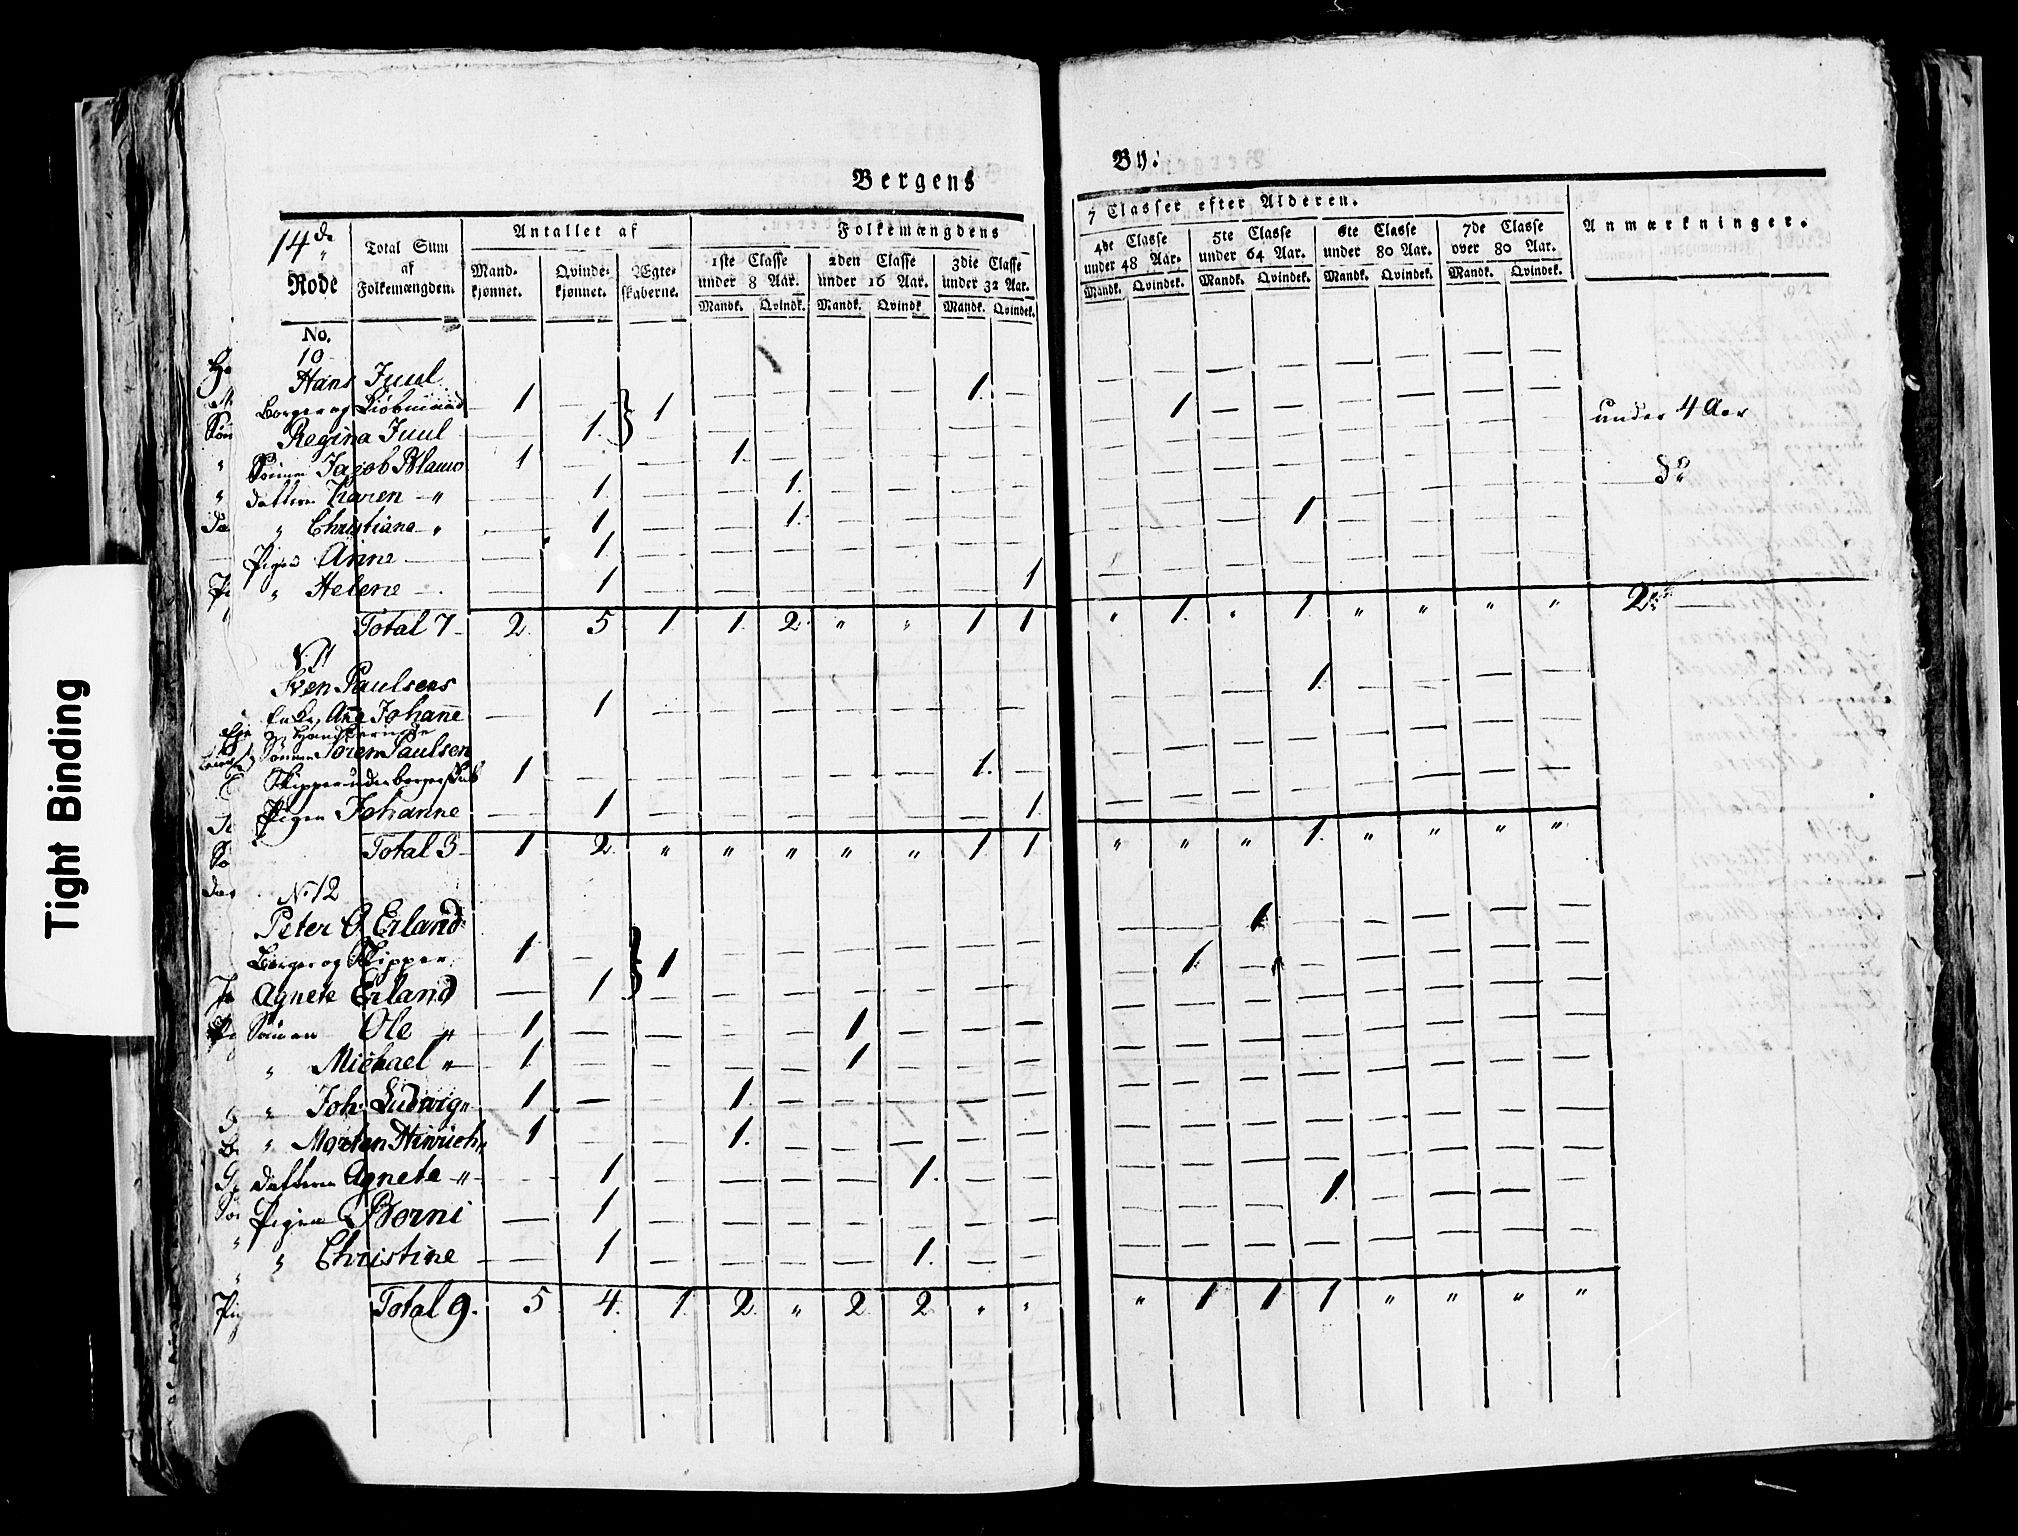 Tight Binding
Bergens By.
14de Rode
Total Sum af Folkemængden.
Antallet af
Mandkjønnet. Qvindekjønnet. Ægteskaberne.
Folkemængdens 7 Classer efter Alderen.
1ste Classe under 8 Aar. 2den Classe under 16 Aar. 3die Classe under 32 Aar. 4de Classe under 48 Aar. 5te Classe under 64 Aar. 6te Classe under 80 Aar. 7de Classe over 80 Aar.
Anmærkninger.
Mandk. Qvindk. Mandk. Qvindk. Mandk. Qvindek. Mandk. Qvindek. Mandk. Qvindek. Mandk. Qvindek. Mandk. Qvindek.
No.
10
Hans Juul
Borger og 1 — 1 1. —
Regina Juul — 1. 1 under 4 Aar
Sønnen Jacob 1 — — 1.
Datteren Karen " — 1. — 1. do
" Christiana " — 1 — 1.
Pigen Anne — 1. 1
" Helene — 1 — 1
Total 7 2. 5 1 1. 2. " " 1 1 " 1. " 1. " " " " 2
N. 11
Sven Paulsens
Enke, Ane Johanne — 1 — 1.
Sønnen Sören Paulsen
Skipper 1 — 1.
Pigen Johanne — 1 — 1.
Total 3 1 2. " " " " " 1. 1 " " " 1. " " " "
N. 12
Peter O. Erland
Borger og Skipper 1 — 1 1
Agnete Erland — 1 — 1
Sønnen Ole " 1 — 1
" Michael " 1 — 1
" Joh: Ludwig " 1 — 1.
" Morten Hinrich " 1 — 1.
Datteren Agnete " — 1 — 1.
Pigen Borni — 1 — 1.
" Christine — 1 — 1.
Total 9. 5. 4. 1. 2. " 2 2 " " " 1 1 1 " " " "